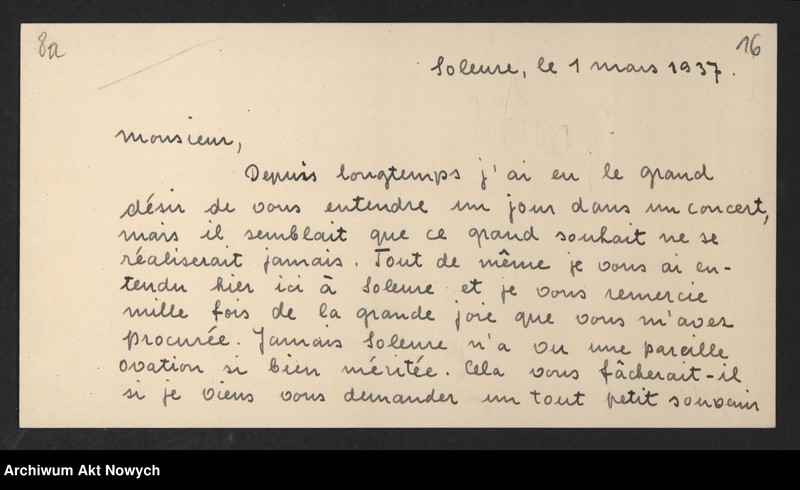 8a
16
Soleure, le 1 mars 1937.
Monsieur,
Depuis longtemps j'ai eu le grand
désir de vous entendre un jour dans un concert,
mais il semblait que ce grand souhait ne se
réaliserait jamais. Tout de même je vous ai en-
tendu hier ici à Soleure et je vous remercie
mille fois de la grande joie que vous m'avez
procurée. Jamais Soleure n'a vu une pareille
ovation si bien méritée. Cela vous fâcherait-il
si je viens vous demander un tout petit souvenir
Archiwum Akt Nowych